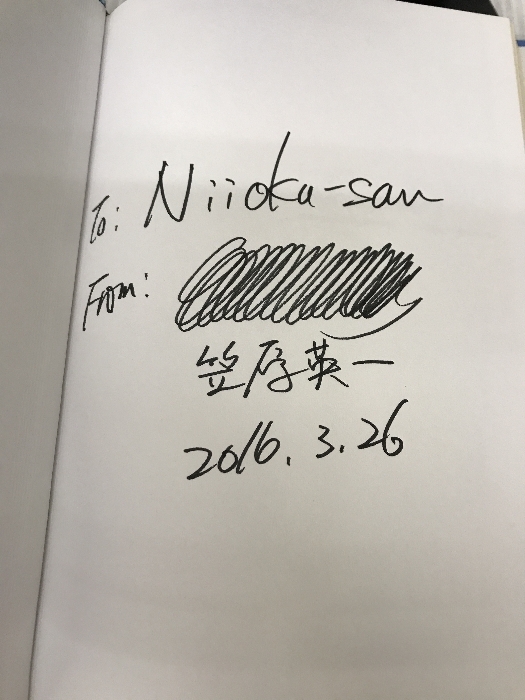 To: Niioka-san
From:
笠原英一
2016.3.26